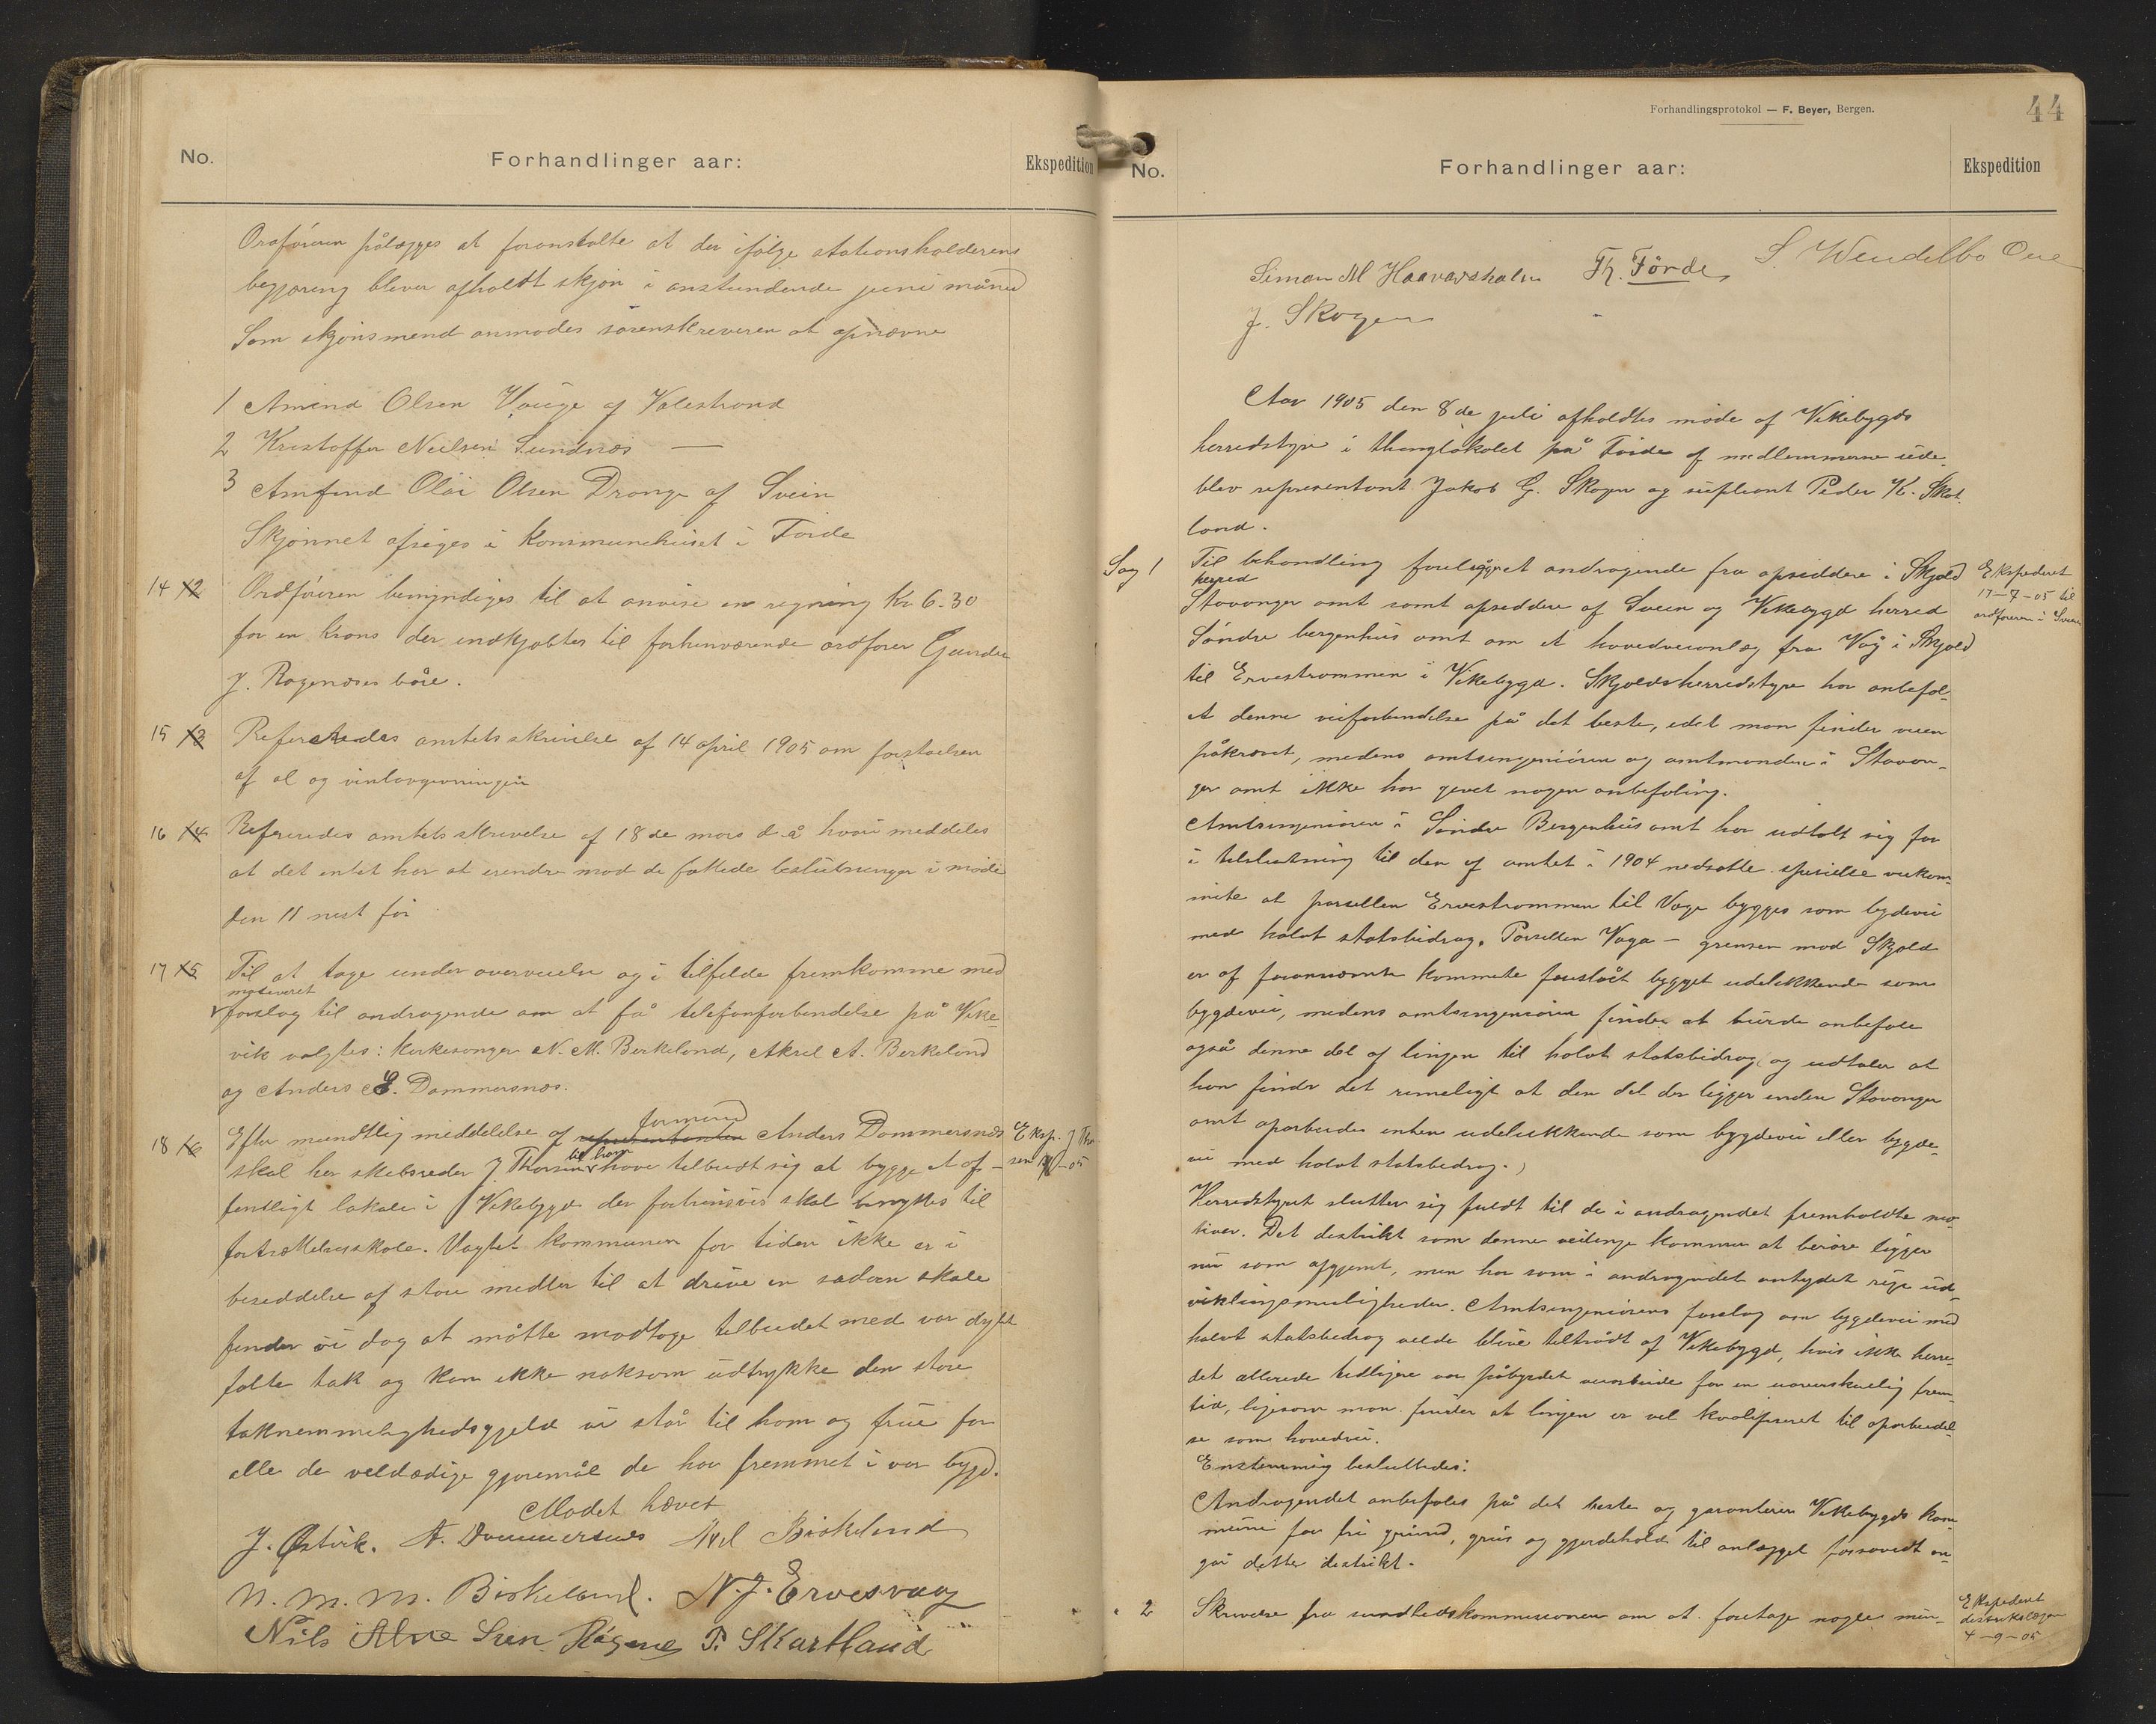 No.
Forhandlinger aar:
Ekspedition
Ordføreren pålægges at foranstalte at der ifølge stationsholderens
begjæring blever afholdt skjøn i anstundende juni måned
Som skjønsmend anmodes sorenskreveren at opnævne
1 Amund Olsen Vaage af Valestrand
2 Kristoffer Neilsen Sundnæs —
3 Amfind Olai Olsen Drange af Svein
Skjønnet afsiges i Kommunehuset i Førde
14 12 Ordføreren bemyndiges til at anvise en regning Kr 6-30
for en krans der indkjøbtes til forhenværende ordfører Gunder
J. Ragenæses båre.
15 13 Refereredes amtets skrivelse af 14 april 1905 om forståelsen
af øl og vinlovgivningen
16 14 Refereredes amtets skrivelse af 18de mars d å hvori meddeles
at det intet har at erendre mod de fattede beslutninger i møde
den 11 nest før
17 15 Til at tage under overveielse og i tilfelde fremkomme med
motiveret
forslag til andragende om at få telefonforbindelse på Vike-
vik valgtes: Kirkesanger N. M. Berkeland, Aksel A. Berkeland
og Anders E. Dommersnæs.
formand
18 16 Efter mundtlig meddelelse af representanten Anders Dommersnæs
Eksp. J Thor
til ham
skal her skibsreder J. Thorsen have tilbudt sig at bygge et of-
sen -05
fentligt lokale i Vikebygd der forhinsvis skal benyttes til
fortsættelsesskole. Uagtet kommunen for tiden ikke er i
beseddelse af store medler til at drive en sådan skole
finder vi dog at måtte modtage tilbudet med vor dybt
følte tak og kan ikke noksom udtrykke den store
taknemmelighedsgjeld vi står til ham og frue for
alle de veldædige gjøremål de har fremmet i vor bygd.
Mødet hævet
J. Østvik. A. Dommersnes Axel Birkeland
N. M. M. Birkeland. N. J. Ervesvaag
Nils Alne Sven Røgenes P. Skartland
Forhandlingsprotokol — F. Beyer, Bergen.
44
No.
Forhandlinger aar:
Ekspedition
Simon M Haavarsholm Th. Førde, S. Wendelbo
J. Skogen
Aar 1905 den 8de juli afholdtes møde af Vikebygds
herredstyre i thinglokalet på Førde af medlemmerne ude-
blev representant Jakob G. Skogen og supleant Peder K. Skat
land.
Sag 1 Til behandling foreligger et andragende fra opsiddere i Skjold
Ekspederet
herred
17-7-05 til
Stavanger amt samt opseddere af Svein og Vikebygd herred
ordføreren i Svein
Søndre bergenhus amt om et hovedveianlæg fra Våg i Skjold
til Ervestrømmen i Vikebygd. Skjoldsherredstyre har anbefal-
et denne veiforbindelse på det beste, idet man finder veien
påkrævet, medens amtsingeniøren og amtmanden i Stavan-
ger amt ikke har gevet nogen anbefaling.
Amtsingeniøren i Søndre Bergenhus amt har udtalt sig for
i tilslutning til den af amtet i 1904 nedsatte specielle veikom-
mite at parsellen Ervestrømmen til Vaga bygges som bygdevei
med halvt statsbidrag. Parsellen Vaga — grensen mod Skjold
er af forannævnte kommete foreslået bygget udelukkende som
bygdevei, medens amtsingeniøren finder at burde anbefale
også denne del af linjen til halvt statsbidrag, og udtaler at
han finder det remeligt at den del der ligger enden Stavanger
amt oparbeides enten udelukkende som bygdevei eller bygde-
vei med halvt statsbedrag.
Herredstyret slutter sig fuldt til de i andragendet fremholdte mo-
tiver. Det destrikt som denne veilinje kommer at berøre ligger
nu som afgjemt, men har som i andragendet antydet rige ud-
viklingsmuligheder. Amtsingeniørens forslag om bygdevei med
halvt statsbedrag velde blive tiltrådt af Vikebygd, hvis ikke herre-
det allerede tidligere var påbyrdet veiarbeide for en uoverskuelig frem-
tid, ligesom man finder at linjen er vel kvalifiseret til oparbeidel-
se som hovedvei.
Enstemmig besluttedes:
Andragendet anbefales på det beste og garanterer Vikebygds kom-
mune for fri grund, grus og gjerdehold til anlægget forsaavidt an-
går dette distrikt.
2 Skrivelse fra sundhedskommisionen om at foretage nogle min-
Ekspederet
destriktslægen
4-9-05